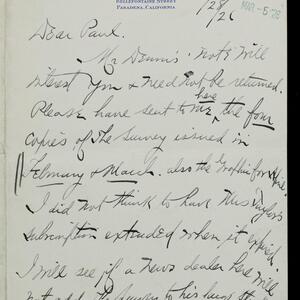 BELLEFONTAINE STREET
PASADENA, CALIFORNIA
1/28/26
MAR -5 '26
Dear Paul.
Mr Dennis' note will
interest you & need not be returned.
Please have sent to me here the four
copies of The Survey issued in
February & March. also the Graphic for
I did not think to have Miss Taylor's
subscription extended when it expired.
I will see if a news dealer here will
not add The Survey to his